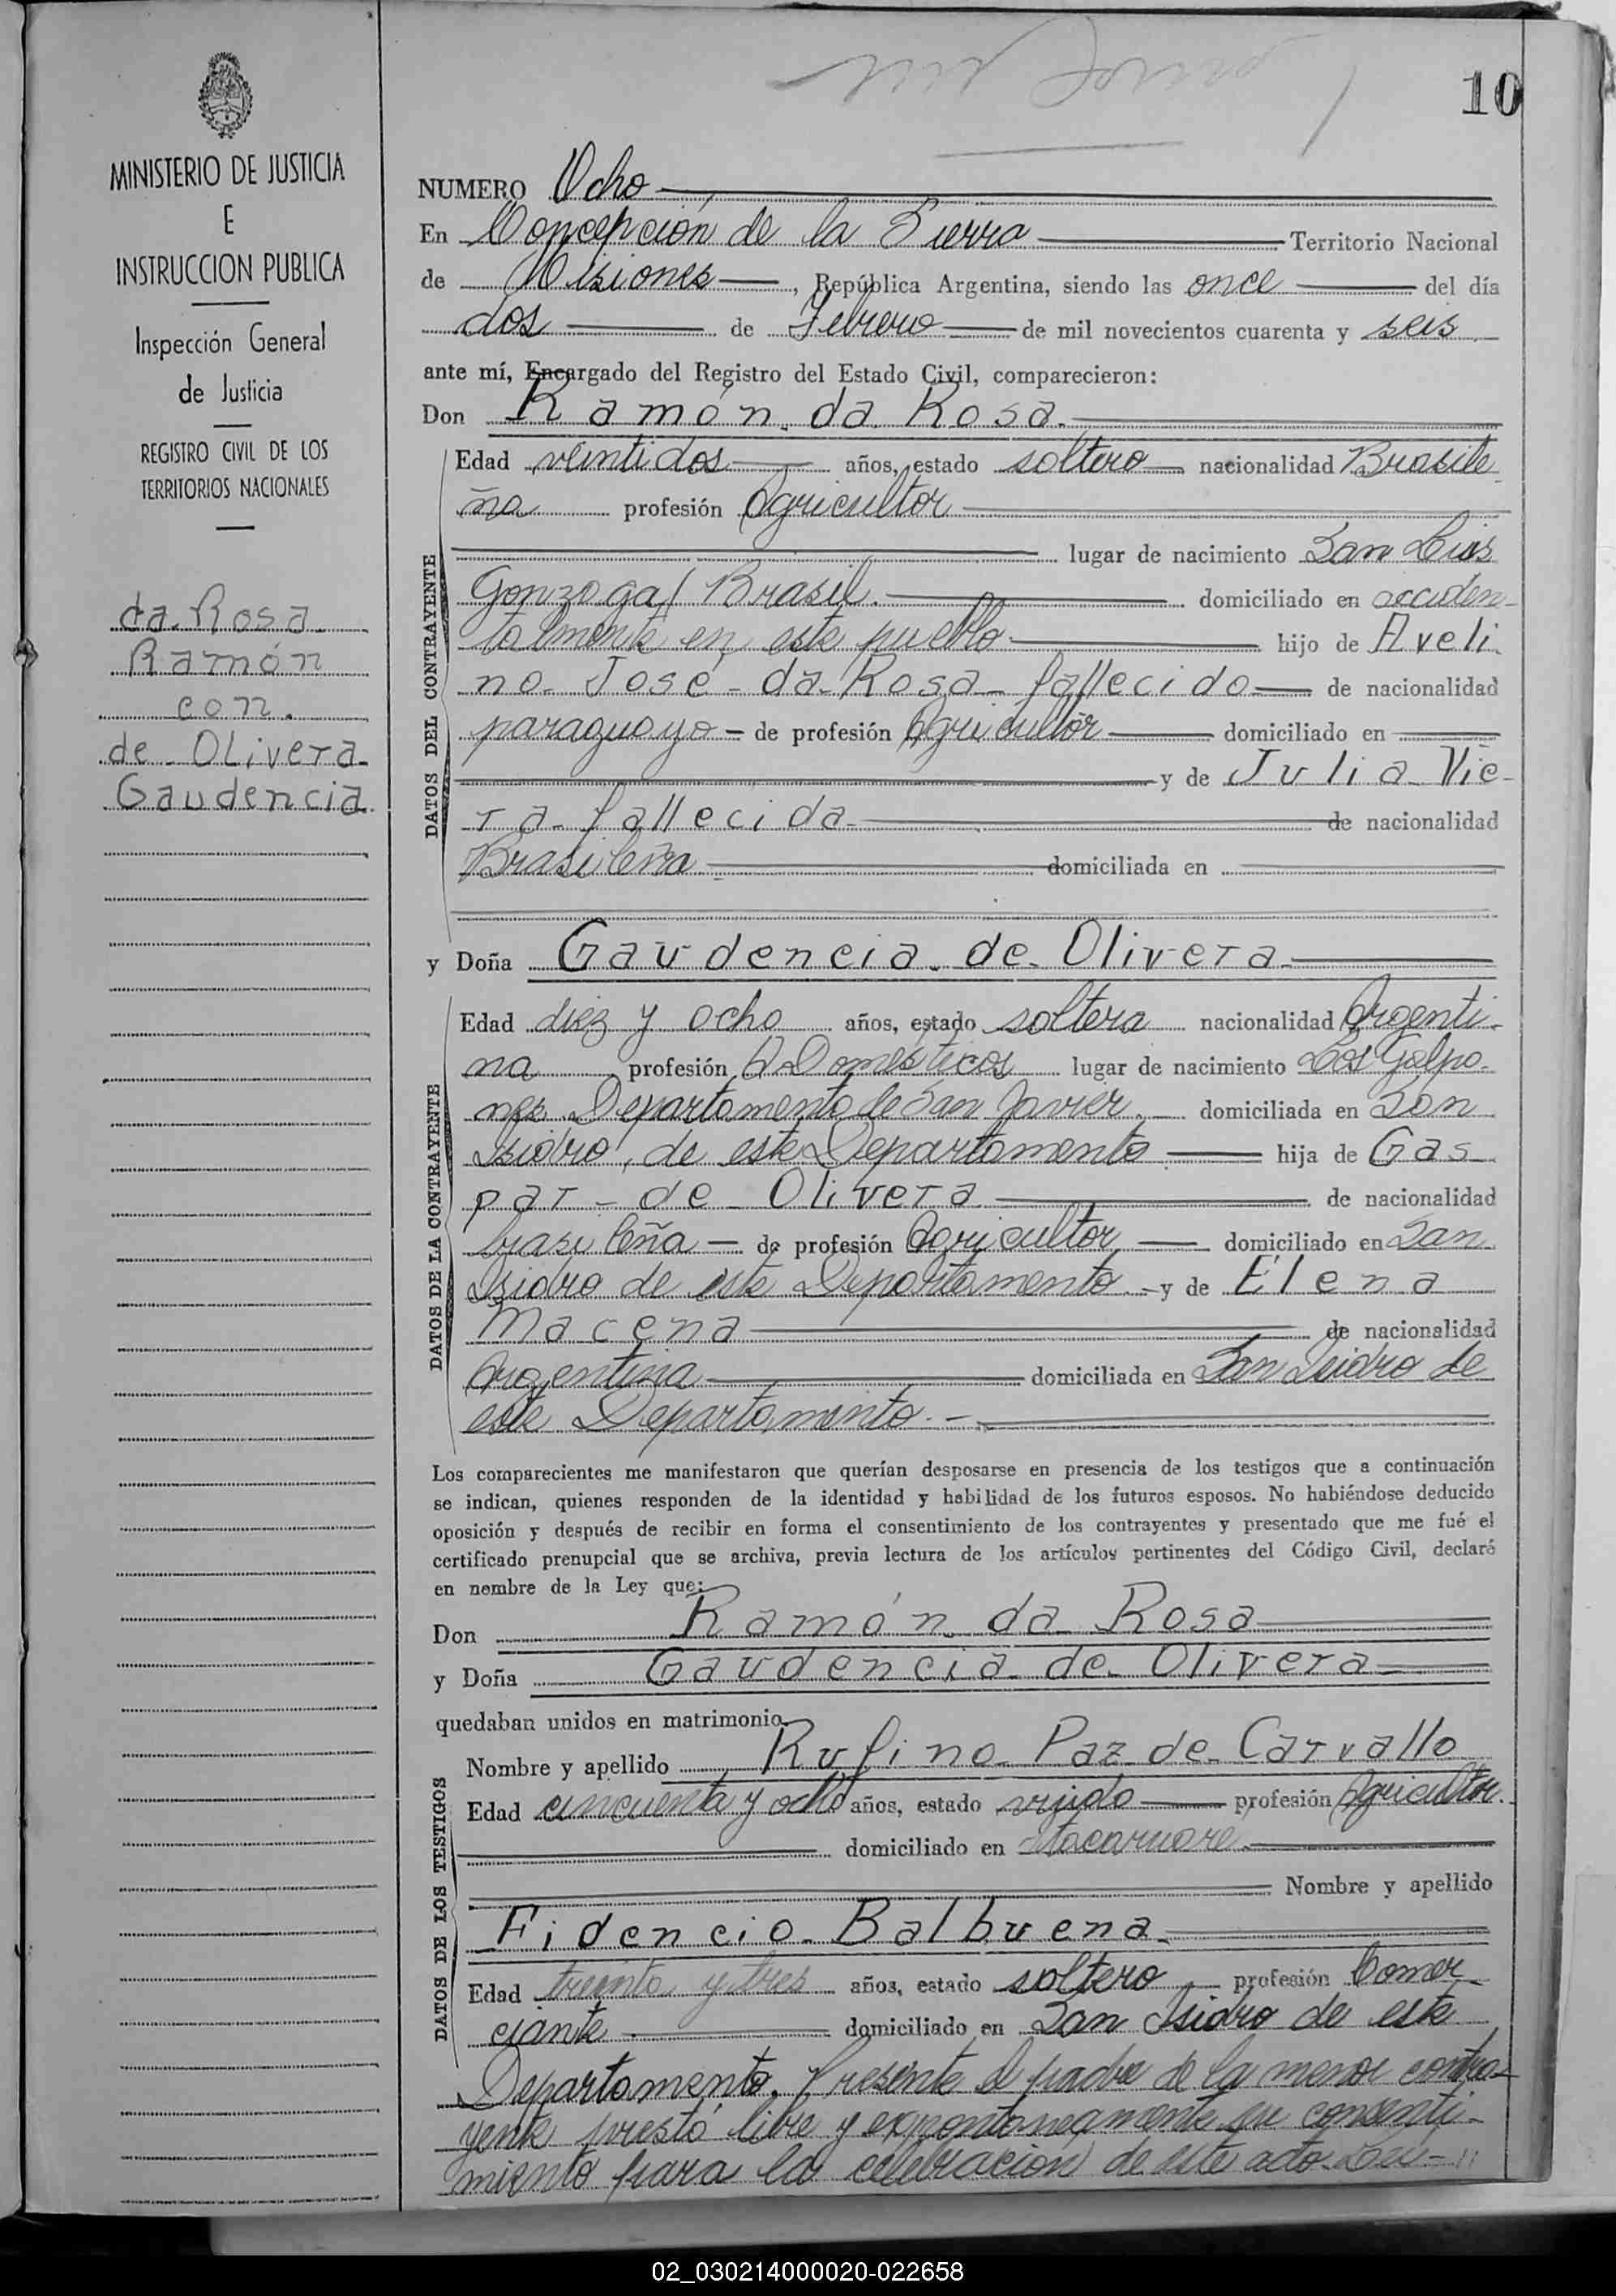 10
MINISTERIO DE JUSTICIA
E
INSTRUCCION PUBLICA
Inspección General
de Justicia
REGISTRO CIVIL DE LOS
TERRITORIOS NACIONALES
da Rosa
Ramón
con
de Olivera
Gaudencia
NUMERO Ocho
En Concepción de la Sierra Territorio Nacional
de Misiones, República Argentina, siendo las once del día
dos de Febrero de mil novecientos cuarenta y seis
ante mí, Encargado del Registro del Estado Civil, comparecieron:
Don Ramón da Rosa
DATOS DEL CONTRAYENTE
Edad veintidos años, estado soltero nacionalidad Brasile
ña profesión Agricultor
lugar de nacimiento San Luis
Gonzaga/ Brasil. domiciliado en acciden-
talmente en este pueblo hijo de Aveli
no José da Rosa fallecido de nacionalidad
paraguayo de profesión Agricultor domiciliado en
y de Julia Vie-
ra fallecida de nacionalidad
Brasileña domiciliada en
y Doña Gaudencia de Olivera
DATOS DE LA CONTRAYENTE
Edad diez y ocho años, estado soltera nacionalidad Argenti-
na profesión Q. Domésticos lugar de nacimiento Los Galpo-
nes Departamento de San Javier. domiciliada en San
Isidro, de este Departamento hija de Gas
par de Olivera de nacionalidad
brasileña de profesión Agricultor domiciliado en San
Isidro de este Departamento y de Elena
Macena de nacionalidad
Argentina domiciliada en San Isidro de
este Departamento.-
Los comparecientes me manifestaron que querían desposarse en presencia de los testigos que a continuación
se indican, quienes responden de la identidad y habilidad de los futuros esposos. No habiéndose deducido
oposición y después de recibir en forma el consentimiento de los contrayentes y presentado que me fué el
certificado prenupcial que se archiva, previa lectura de los artículos pertinentes del Código Civil, declaré
en nombre de la Ley que:
Don Ramón da Rosa
y Doña Gaudencia de Olivera
quedaban unidos en matrimonio.
DATOS DE LOS TESTIGOS
Nombre y apellido Rufino Paz de Carvallo
Edad cincuenta y ocho años, estado viudo profesión Agricultor.
domiciliado en Itacaruaré
Nombre y apellido
Fidencio Balbuena
Edad treinta y tres años, estado soltero profesión Comer-
ciante domiciliado en San Isidro de este
Departamento. Presente el padre de la menor contra-
yente prestó libre y expontaneamente su consenti-
miento para la celebración de este acto.
02_030214000020-022658